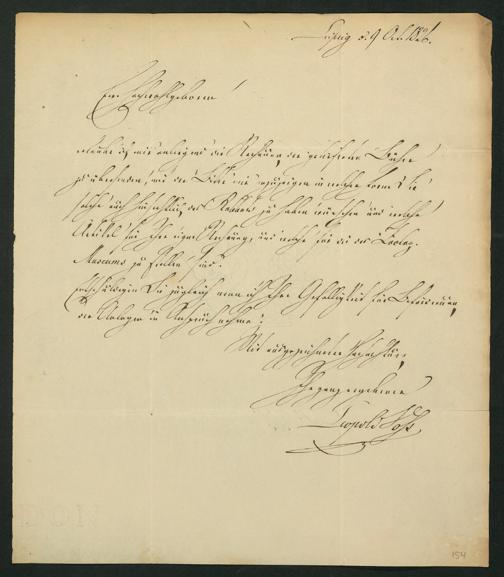 Leipzig d. 9 Octbr
Ew. Hochwohlgeboren!
erlaube ich mir anliegend die Rechnung der gelieferten Bücher
zu übersenden, mit der Bitte mir anzuzeigen in welcher Form Sie
solche nach des Rabatts zu haben wünschen und welche
Artikel für Ihre eigne Rechnung, und welche für die des Zoolog.
Museums zu stellen sind.
Entschuldigen Sie zugleich wenn ich Ihre Gefälligkeit
der in Anspruch nehme.
Mit ausgezeichneter Hochachtung
Ihr ganz ergebener
Leopold Voß
154